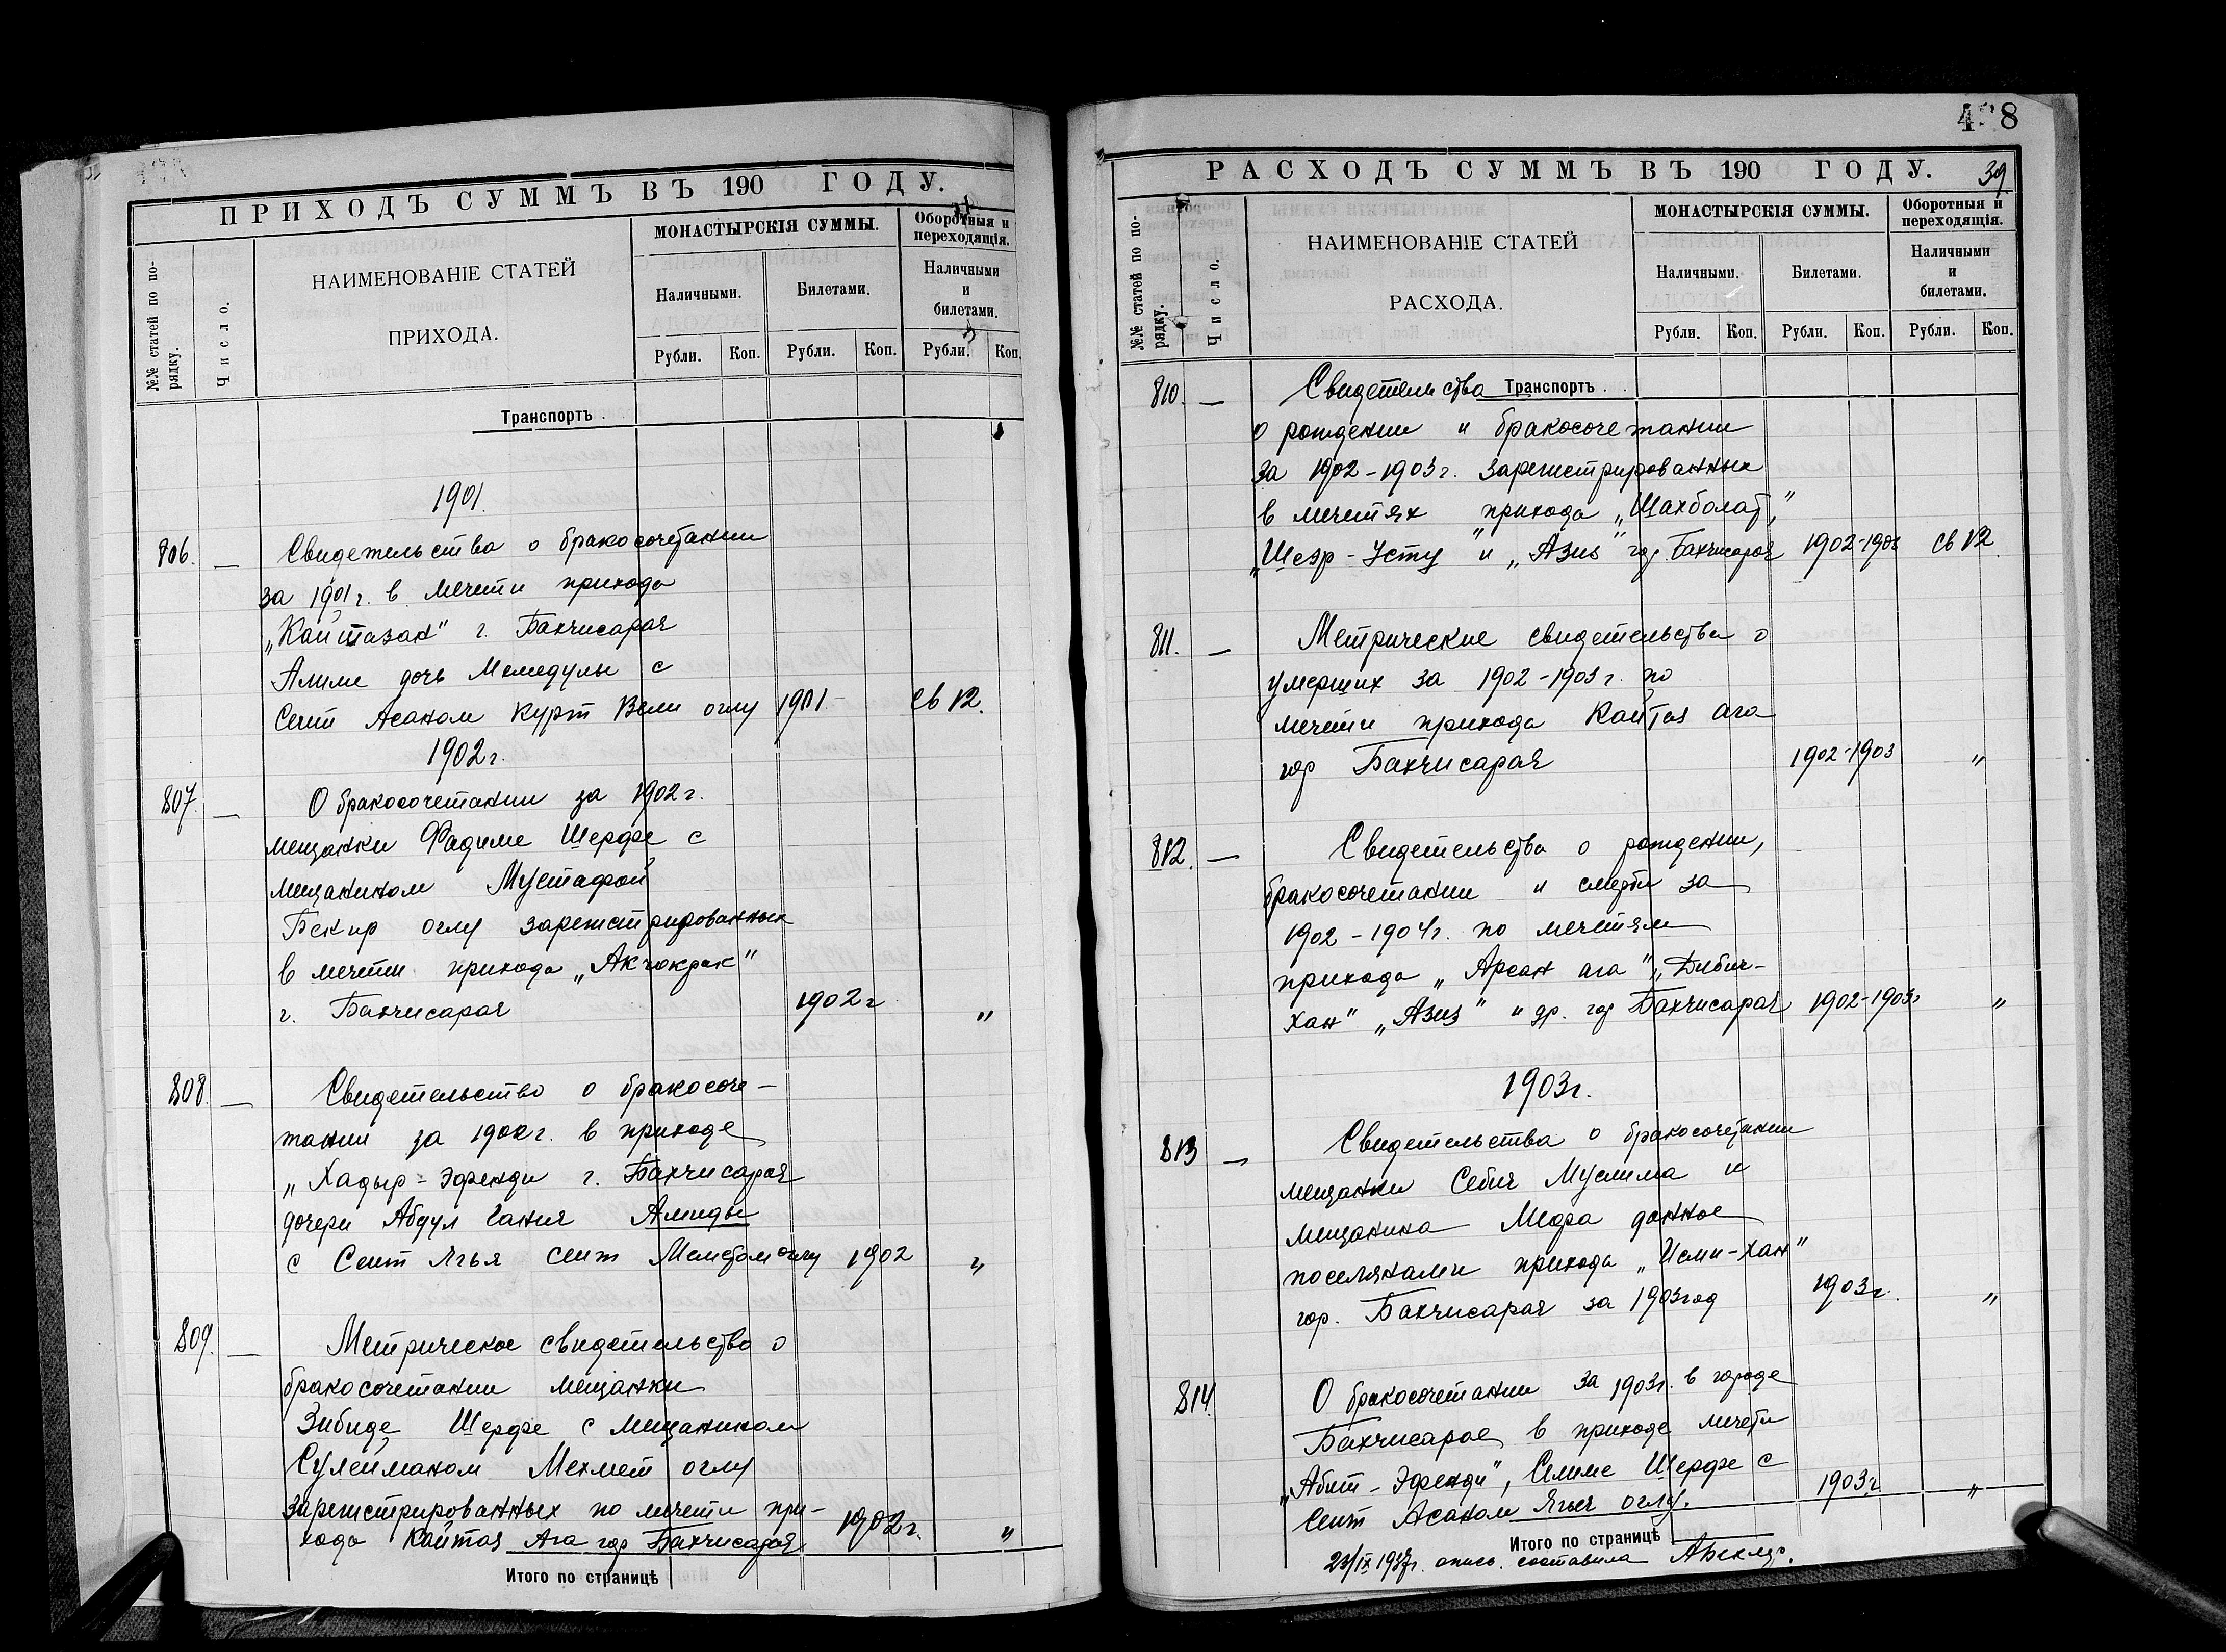 ПРИХОДЪ СУММЪ ВЪ 190 ГОДУ.
№№ статей по по-
рядку.
Число.
НАИМЕНОВАНІЕ СТАТЕЙ
ПРИХОДА.
МОНАСТЫРСКІЯ СУММЫ.
Оборотныя и
переходящія.
Наличными.
Билетами.
Наличными
и
билетами.
Рубли. Коп. Рубли. Коп. Рубли. Коп.
Транспортъ .
1901.
806. — Свидетельства о бракосочетании
за 1901 г. в мечети прихода
„Кайтазан" г. Бахчисарая
Алиме дочь Мемедулы с
Сеит Асаном Курт Вели оглу 1901 св 12.
1902 г.
807. — О бракосочетании за 1902 г.
мещанки Фадиме Шерфе с
мещанином Мустафой
Бекир оглу зарегистрированных
в мечети прихода „Акчокрак"
г. Бахчисарая 1902 г "
808. — Свидетельство о бракосоче-
тании за 1902 г. в приходе
„Хадыр-Эфенди г. Бахчисарая
дочери Абдул Гания Амиды
с Сеит Ягья Сеит Меметом оглу 1902 "
809. — Метрическое свидетельство о
бракосочетании мещанки
Зибиде Шерфе с мещанином
Сулейманом Мехмет оглу
зарегистрированных по мечети при-
хода Кайтаз Ага гор Бахчисарая 1902 г. "
Итого по страницѣ
4 8
РАСХОДЪ СУММЪ ВЪ 190 ГОДУ.
39
№№ статей по по-
рядку.
Число.
НАИМЕНОВАНІЕ СТАТЕЙ
РАСХОДА.
МОНАСТЫРСКІЯ СУММЫ.
Оборотныя и
переходящія.
Наличными.
Билетами.
Наличными
и
билетами.
Рубли. Коп. Рубли. Коп. Рубли. Коп.
810. — Свидетельства Транспортъ . .
о рождении и бракосочетании
за 1902-1903 г. зарегистрированных
в мечетях прихода „Шахболат",
„Шеэр-Усту" и „Азиз" гор Бахчисарая 1902-1903 св 12
811. — Метрические свидетельства о
умерших за 1902-1903 г. по
мечети прихода Кайтаз ага
гор Бахчисарая 1902-1903 "
812. — Свидетельства о рождении,
бракосочетании и смерти за
1902-1904 г. по мечетям
прихода „Арсан ага", „Бибич-
Хан" „Азиз" и др. гор Бахчисарая 1902-1903 г "
1903 г.
813 — Свидетельства о бракосочетании
мещанки Себия Муслима и
мещанина данное
поселянами прихода „Исми-Хан"
гор. Бахчисарая за 1903 год 1903 г. "
814. О бракосочетании за 1903 г. в городе
Бахчисарае в приходе мечети
„Абит-Эфенди", Селиме Шерфе с
Сеит Асаном Ягья оглу. 1903 г "
Итого по страницѣ
23/IX 1937 г. опись составила